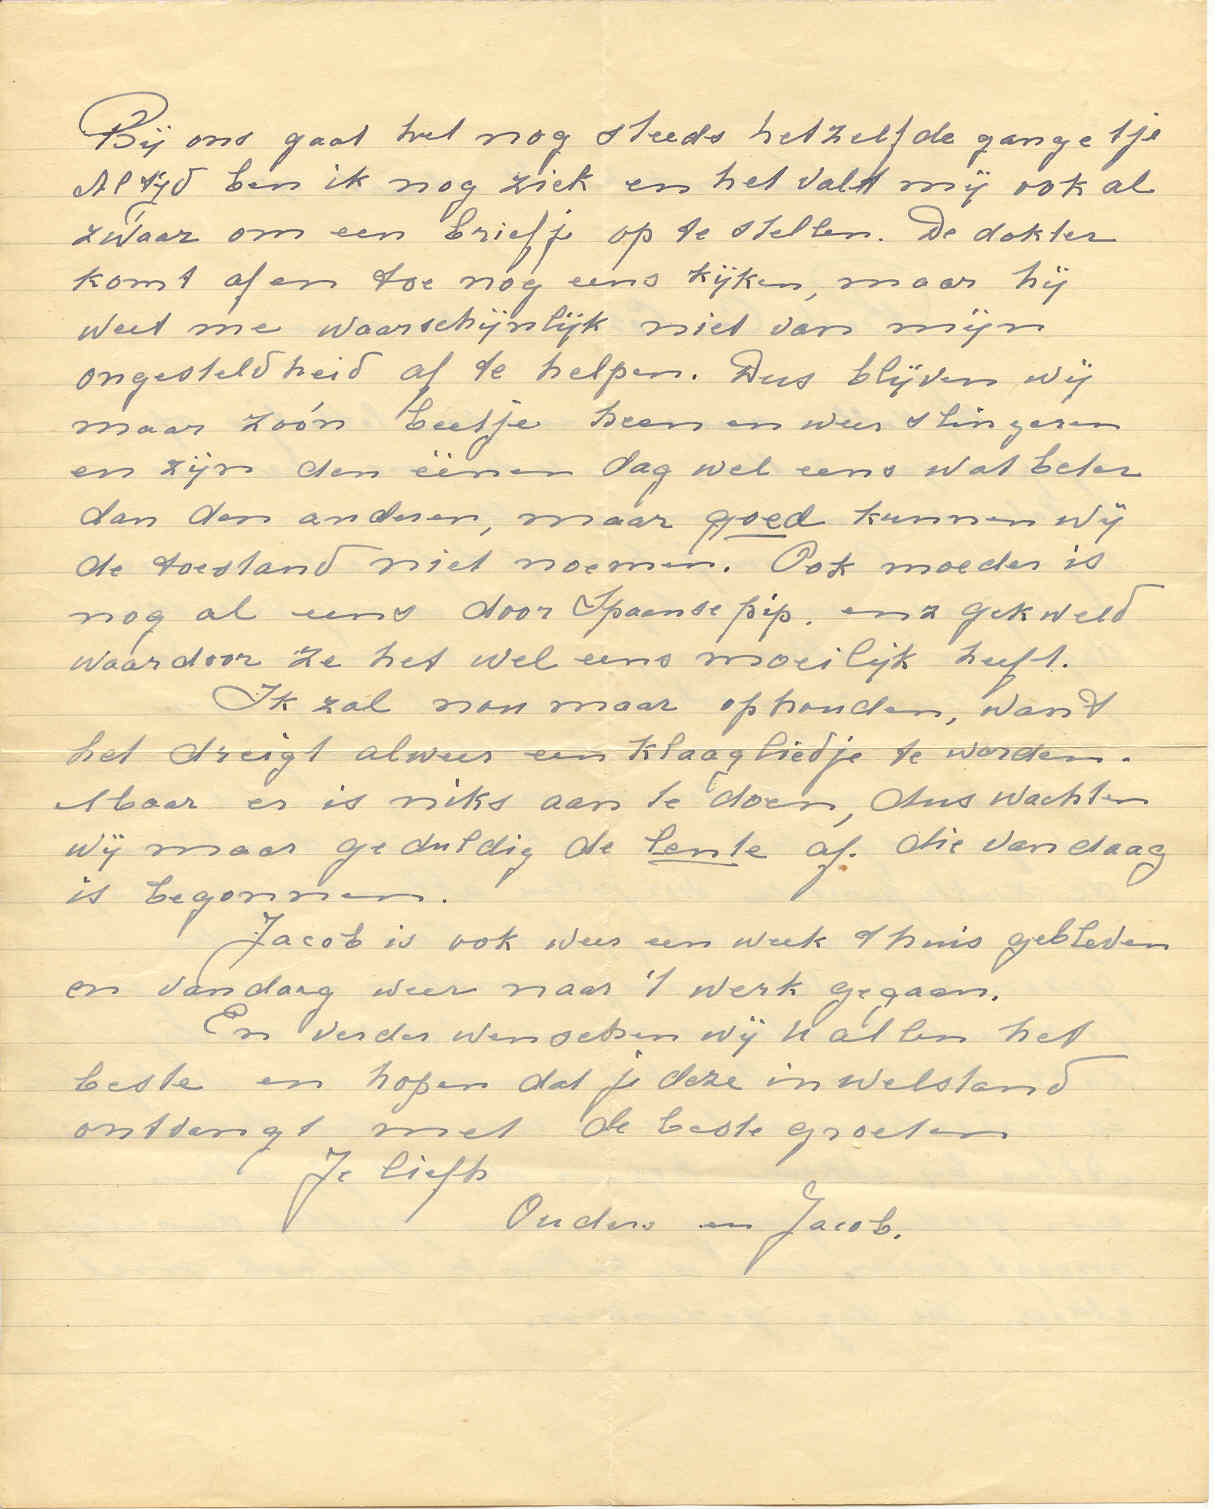 Bij ons gaat het nog steeds hetzelfde gangetje
Altijd ben ik nog ziek en het valt mij ook al
zwaar om een briefje op te stellen. De dokter
komt af en toe nog eens kijken, maar hij
weet me waarschijnlijk niet van mijn
ongesteldheid af te helpen. Dus blijven wij
maar zoo'n beetje heen en weer slingeren
en zijn den ëënen dag wel eens wat beter
dan den anderen, maar goed kunnen wij
de toestand niet noemen. Ook moeder is
nog al eens door Spaense pip. enz gekweld
waardoor ze het wel eens moeilijk heeft.
Ik zal nou maar ophouden, want
het dreigt alweer een klaagliedje te worden.
Maar er is niks aan te doen, dus wachten
wij maar geduldig de lente af. die vandaag
is begonnen.
Jacob is ook weer een week thuis gebleven
en vandaag weer naar 't werk gegaan.
En verder wenschen wij U allen het
beste en hopen dat je deze in welstand
ontvangt met de beste groeten
Je liefh
Ouders en Jacob.